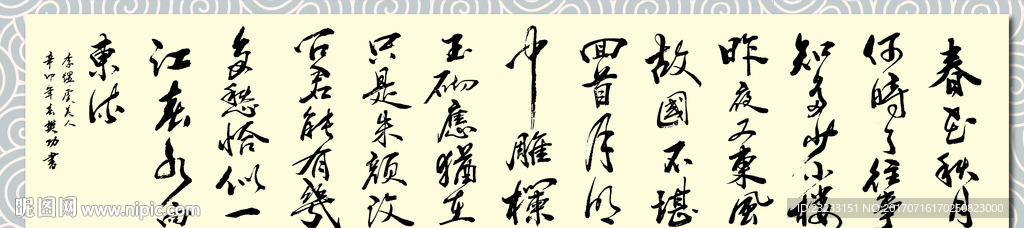 春花秋月
何時了往事
知多少小樓
昨夜又東風
故國不堪
回首月明
中雕欄
玉砌應猶在
只是朱顏改
问君能有幾
多愁恰似一
江春水向
東流
李煜虞美人
辛卯年 書
昵图网 www.nipic.com
NO:20170716170250823000